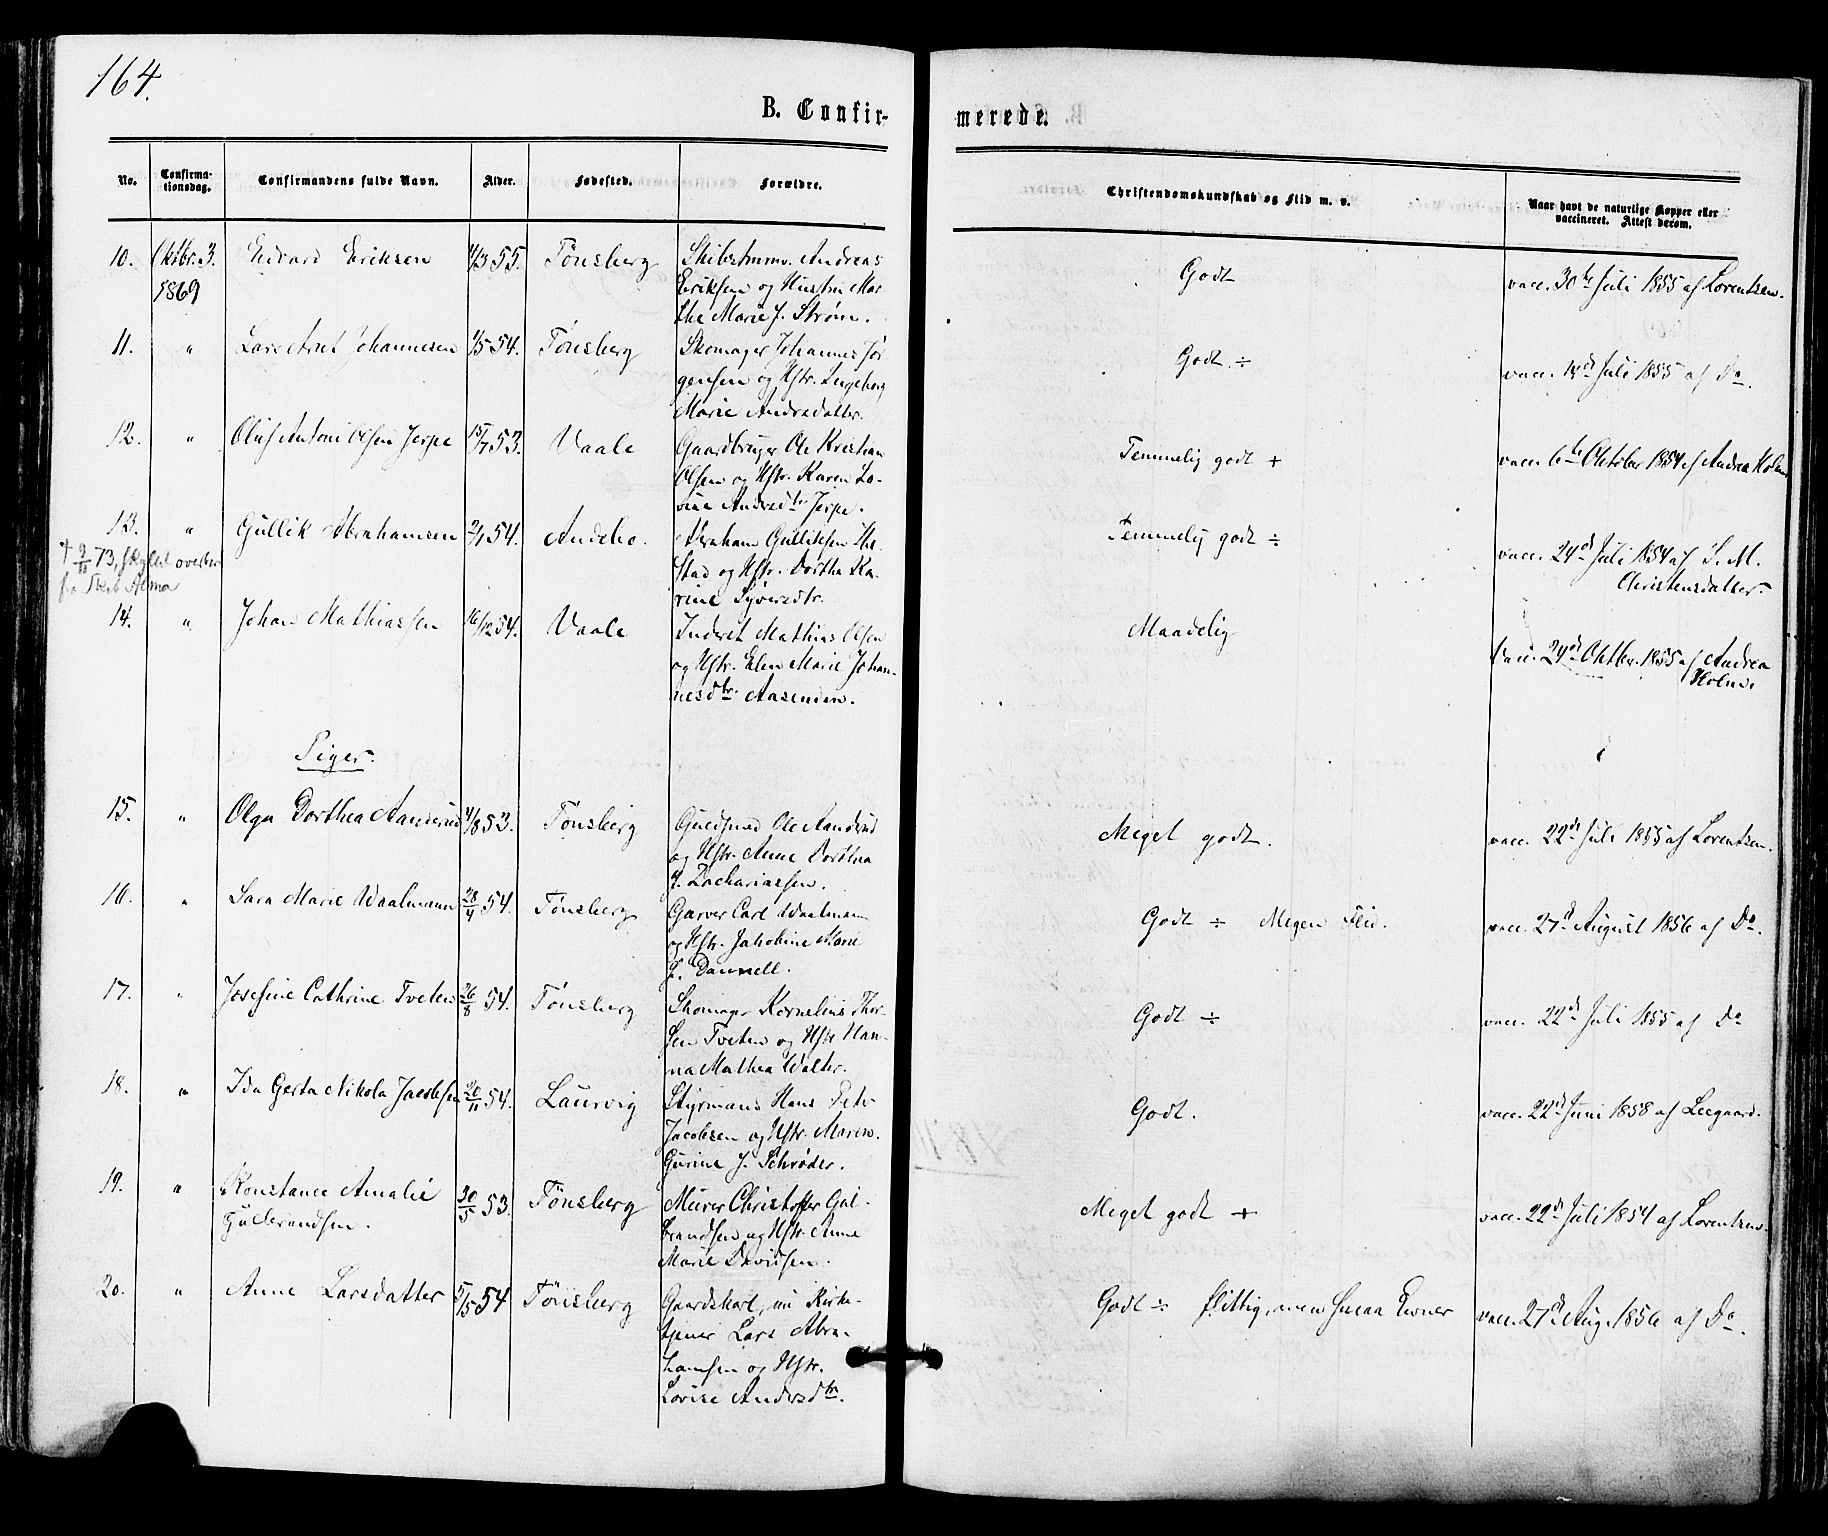 164.
B. Confirmerede.
No. Confirmationsdag. Confirmandens fulde Navn. Alder. Fødested. Forældre. Christendomskundskab og Flid m. v. Naar havt de naturlige Kopper eller vaccineret. Attest derom.
10. Oktbr. 3. Edvard Eriksen 4/3 55. Tønsberg Skibstmmv. Andreas Godt vacc. 30te Juli 1855 af Lorentzen.
1869 Eriksen og Hustru Mar-
the Marie f. Strøm.
11. " Lars Arnt Johannesen 1/5 54. Tønsberg Skomager Johannes Jør Godt ÷ vacc. Juli 1855 af Do.
gensen og Hstr. Ingeborg
Marie Andrsdatter.
12. " Oluf Antoni Olsen Jerpe 15/7 53. Vaale Gaardbruger Ole Kristian Temmelig godt + vacc. 6te Oktober 1854 af Andrea Holm
Olsen og Hstr. Karen Lo-
vise Andrsdtr Jerpe.
13. " Gullik Abrahamsen 2/1 54. Andebo. Abraham Gulliksen Temmelig godt ÷ vacc. 24de Juli 1854 af S. M.
† 9/11 73, skyllet overbr stad og Hstr. Dorthe Ka- Christensdatter.
fra Skib Alma rine Syversdtr.
14. " Johan Mathiassen 16/12 54. Vaale Inderst Mathias Olsen Maadelig vacc. 24de Oktbr. 1855 af Andrea
og Hstr. Elen Marie Johan- Holm.
nesdtr Aasenden.
Piger.
15. " Olga Dorthea Aanderud 4/8 53. Tønsberg Guldsmed Ole Aanderud Meget godt. vacc. 22de Juli 1855 af Lorentzen.
og Hstr. Anne Dorthea
f. Zachariassen.
16. " Sara Marie Waalmann 28/4 54. Tønsberg Garver Carl Waalmann Godt ÷ Megen Flid. vacc. 27de August 1856 af Do.
og Hstr. Jakobine Marie
f. Dannell.
17. " Josefine Cathrine Tveten 26/8 54. Tønsberg Skomager Kornelius Thor- Godt ÷ vacc. 22de Juli 1855 af Do
sen Tveten og Hstr Han-
na Mathea Walter.
18. " Ida Gerta Nikola Jacobsen 20/11 54. Laurvig Styrmand Hans Petr Godt. vacc. 22de Juni 1858 af Leegaard.
Jacobsen og Hstr. Maren
Gurine f. Schrøder.
19. " Konstance Amalie 30/5 53. Tønsberg Murer Christoffer Gul- Meget godt + vacc. 22de Juli 1854 af Lorentzen.
Gulbrandsen. brandsen og Hstr. Anne
Marie Davidsen.
20. " Anne Larsdatter 5/5 54 Tønsberg Gaardskarl, nu Kirke- Godt ÷ flittig, men smaa Evner vacc. 27de Aug. 1856 af Do.
tjener Lars Abra-
hamsen og Hstr.
Lovise Andersdtr.